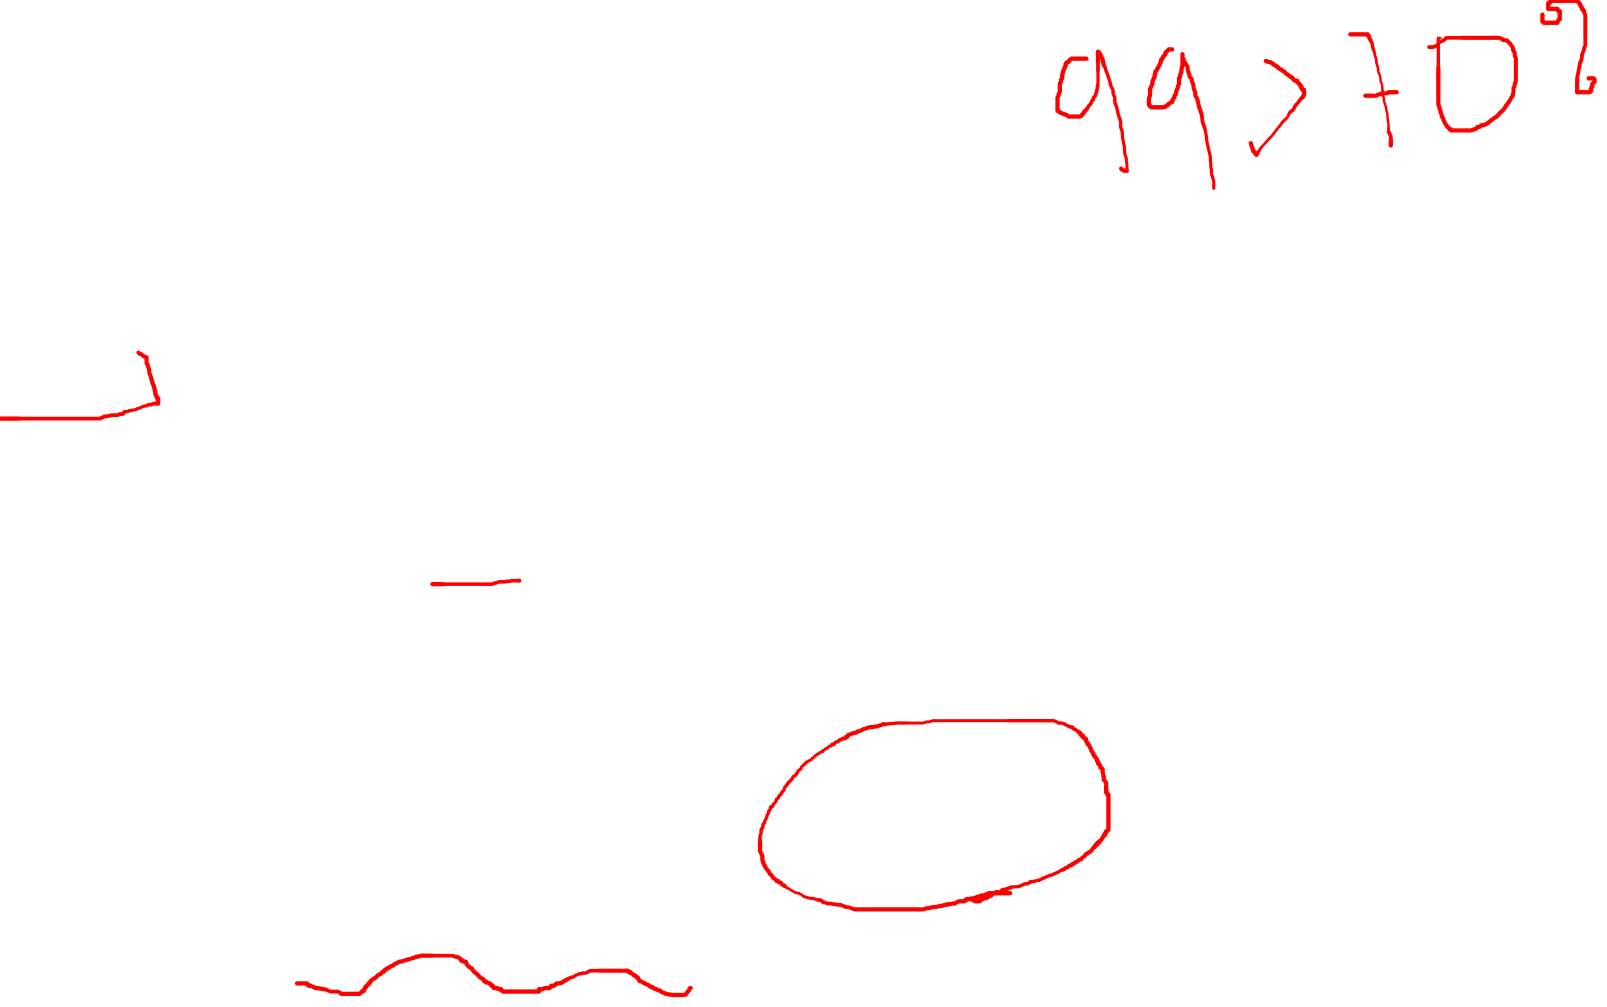 99 > 70